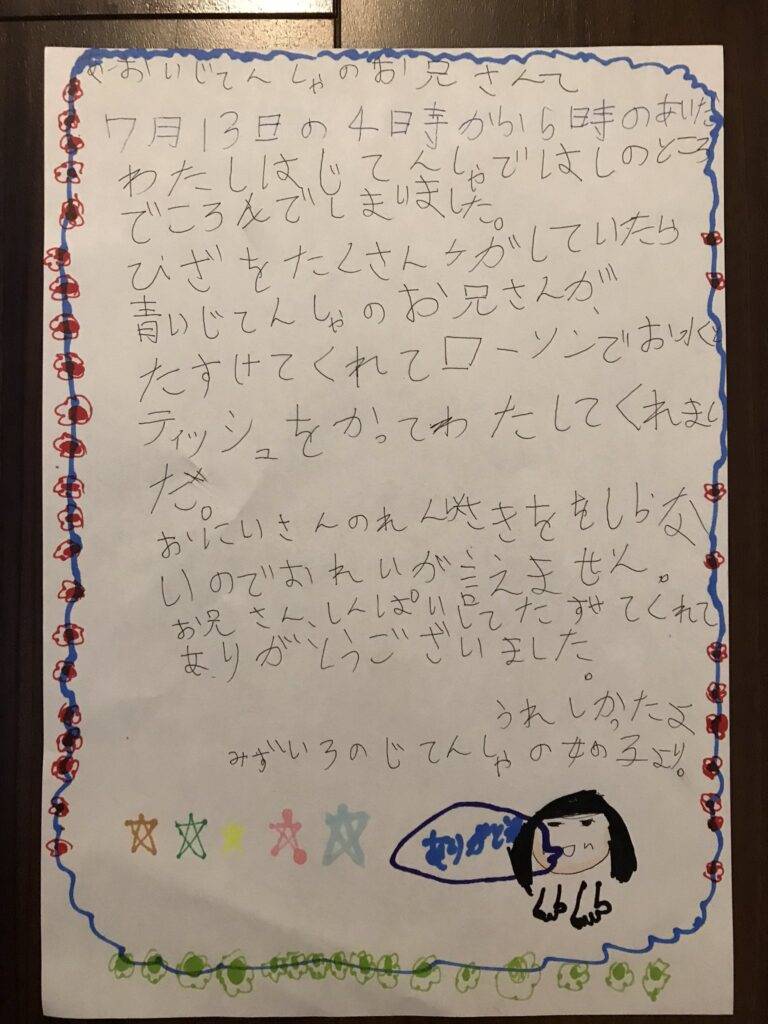 あおいじてんしゃのお兄さんて
7月13日の4時から5時のあいた
わたしはじてんしゃではしのところ
でころんでしまいました。
ひざをたくさんケガしていたら
青いじてんしゃのお兄さんが、
たすけてくれてローソンでお水と
ティッシュをかってわたしてくれまし
た。
おにいさんのれんらくさきををしらな
いのでおれいが言えません。
お兄さん、しんぱいしてたすけてくれて
ありがとうございました。
うれしかったよ
みずいろのじてんしゃの女の子より。
ありがとう